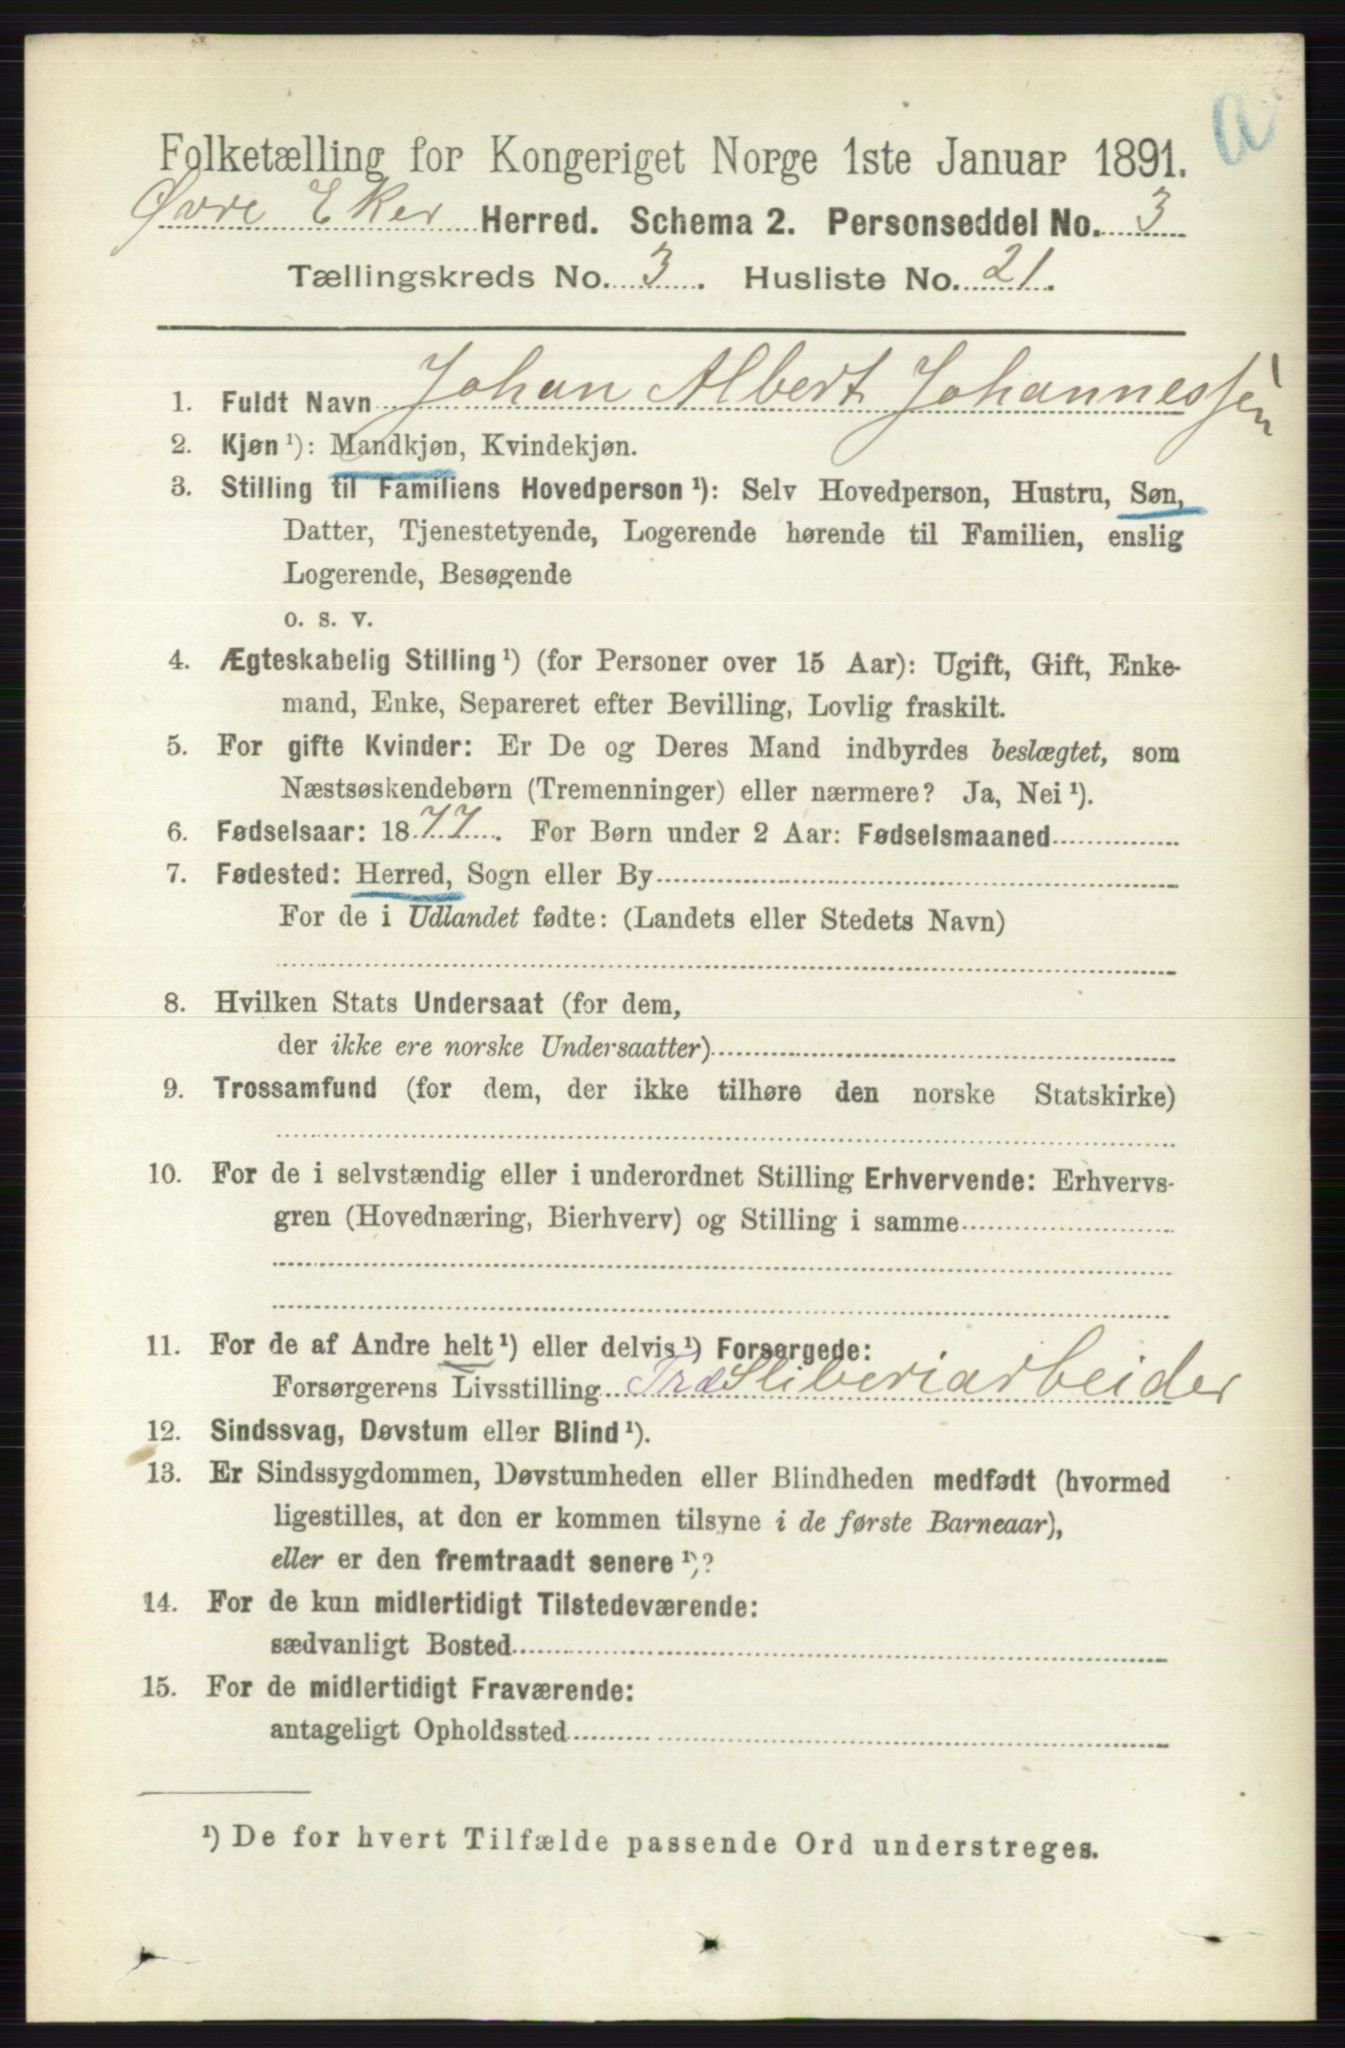 a
Folketælling for Kongeriget Norge 1ste Januar 1891.
Øvre Eker Herred. Schema 2. Personseddel No. 3
Tællingskreds No. 3. Husliste No. 21.
1. Fuldt Navn Johan Albert Johannessen
2. Kjøn ¹): Mandkjøn, Kvindekjøn.
3. Stilling til Familiens Hovedperson ¹): Selv Hovedperson, Hustru, Søn,
Datter, Tjenestetyende, Logerende hørende til Familien, enslig
Logerende, Besøgende
o. s. v.
4. Ægteskabelig Stilling ¹) (for Personer over 15 Aar): Ugift, Gift, Enke-
mand, Enke, Separeret efter Bevilling, Lovlig fraskilt.
5. For gifte Kvinder: Er De og Deres Mand indbyrdes beslægtet, som
Næstsøskendebørn (Tremenninger) eller nærmere? Ja, Nei ¹).
6. Fødselsaar: 1877. For Børn under 2 Aar: Fødselsmaaned
7. Fødested: Herred, Sogn eller By
For de i Udlandet fødte: (Landets eller Stedets Navn)
8. Hvilken Stats Undersaat (for dem,
der ikke ere norske Undersaatter)
9. Trossamfund (for dem, der ikke tilhøre den norske Statskirke)
10. For de i selvstændig eller i underordnet Stilling Erhvervende: Erhvervs-
gren (Hovednæring, Bierhverv) og Stilling i samme
11. For de af Andre helt ¹) eller delvis ¹) Forsørgede:
Forsørgerens Livsstilling Træ Sliberiarbeider
12. Sindssvag, Døvstum eller Blind ¹).
13. Er Sindssygdommen, Døvstumheden eller Blindheden medfødt (hvormed
ligestilles, at den er kommen tilsyne i de første Barneaar),
eller er den fremtraadt senere ¹)?
14. For de kun midlertidigt Tilstedeværende:
sædvanligt Bosted
15. For de midlertidigt Fraværende:
antageligt Opholdssted
¹) De for hvert Tilfælde passende Ord understreges.